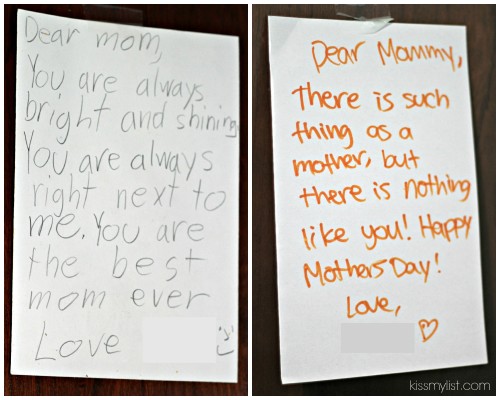 Dear mom,
You are always
bright and shining
You are always
right next to
me. You are
the best
mom ever
Love
Dear Mommy,
There is such
thing as a
mother, but
there is nothing
like you! Happy
Mothers Day!
Love,
kissmylist.com